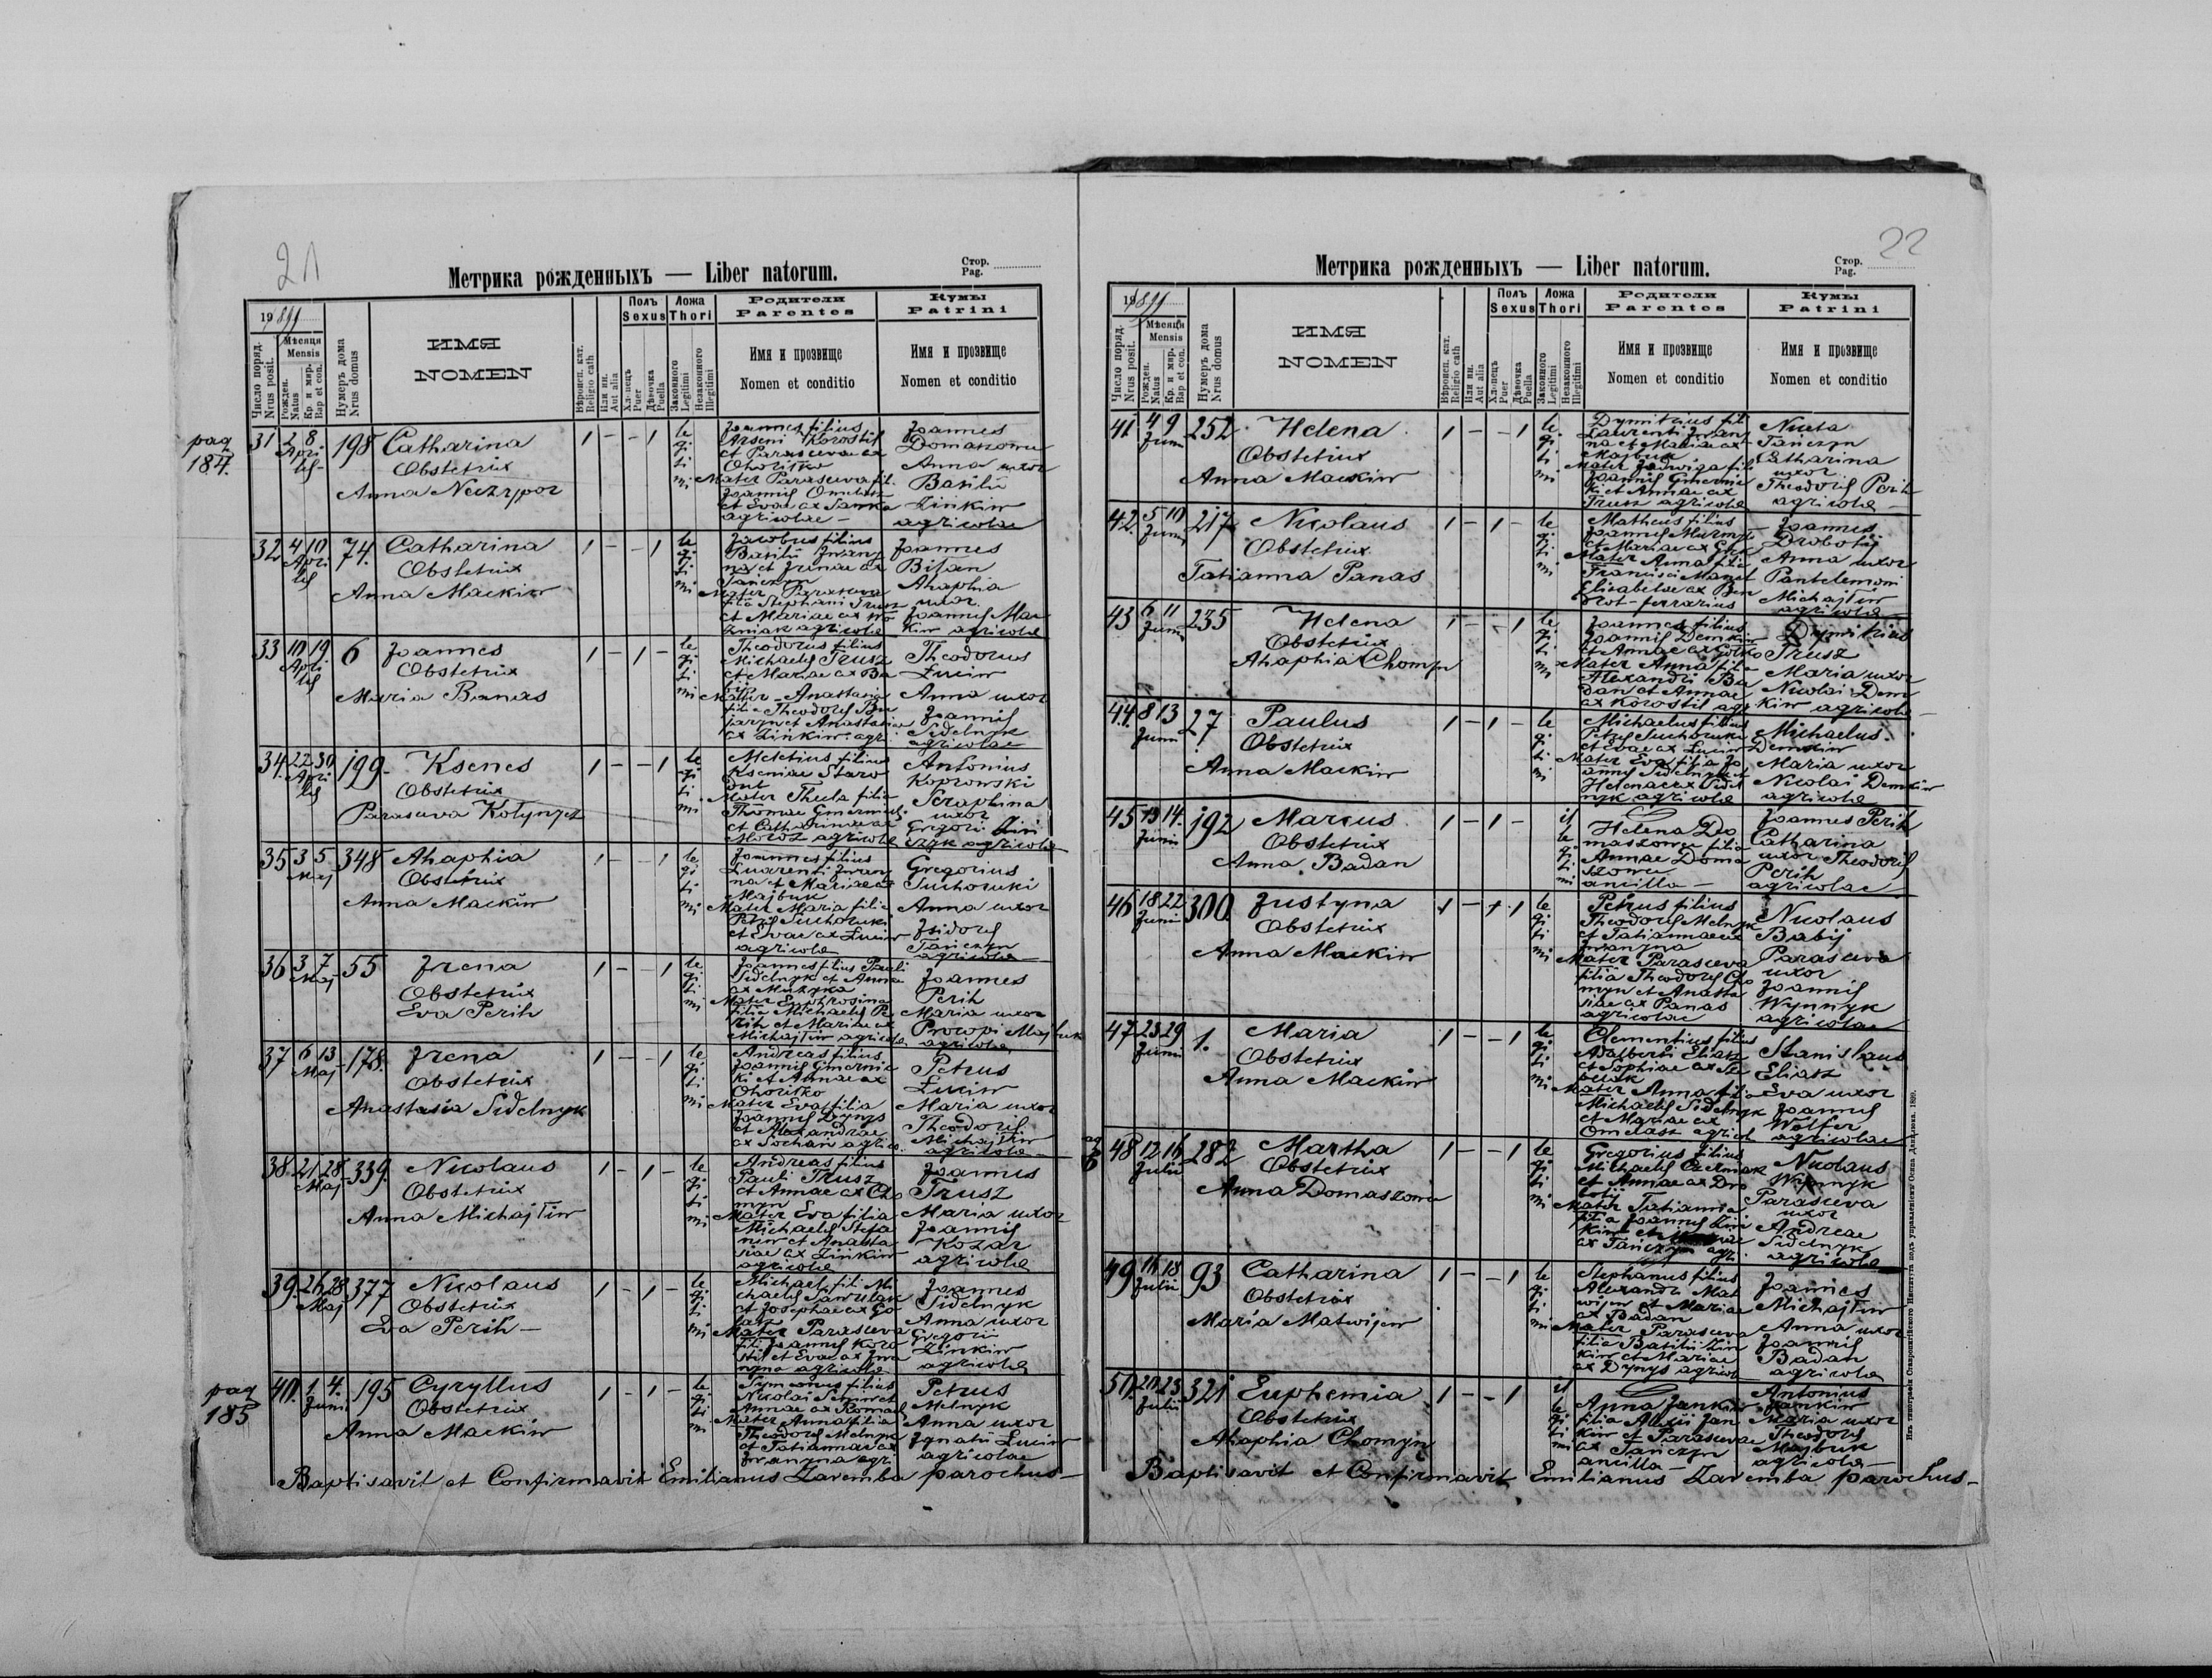 21
Метрика рожденныхъ — Liber natorum.
Стор.
Pag.
1899
Число поряд.
Nrus posit.
Мѣсяця
Mensis
Рожден.
Natus
Кр. и мир.
Bap et con.
Нумеръ дома
Nrus domus
ИМЯ
NOMEN
Вѣроисп. кат.
Religio cath
Или ин.
Aut alia
Полъ
Sexus
Хлопецъ
Puer
Дѣвочка
Puella
Ложа
Thori
Законного
Legitimi
Незаконного
Illegitimi
Родители
Parentes
Имя и прозвище
Nomen et conditio
Кумы
Patrini
Имя и прозвище
Nomen et conditio
pag
184.
31 2 8. Aprilis 198 Catharina
Obstetrix
Anna Neczypor
1 - - 1 legitimi
Joannes filius
Arseni Korostil
et Parascevae ex
Ohoritko
Mater Parasceva fil.
Joannis
et Evae ex
agricolae -
Joannes
Domaszowu
Anna uxor
Basilii
Zinkiw
agricolae
32 4 10 Aprilis 74. Catharina
Obstetrix
Anna Mackiw
1 - - 1 legitimi
Jacobus filius
Basilii Iwany
na et Irenae ex
Tańczyn
Mater Parasceva
filia Stephani Trusz
et Mariae ex Wo
zniak agricolae
Joannes
Bisan
Ahaphia
uxor
Joannis Mac
kiw agricolae
33 10 19 Aprilis 6 Joannes
Obstetrix
Maria Banas
1 - 1 - legitimi
Theodorus filius
Michaelis Trusz
et Mariae ex Ba
bij
Mater Anastasia
filia Theodori
et Anastasiae
ex Zinkiw agri
Theodorus
Luciw
Anna uxor
Joannis
Sidelnyk
agricolae
34. 22 30 Aprilis 199 Ksenes
Obstetrix
Parasceva Kotynycz
1 - - 1 legitimi
Meletius filius
Kseniae Staro
Mater Thecla filia
Thomae Gmernicki
et Catharinae ex
Moroz agricolae
Antonius
Koprowski
Seraphina
uxor
Gregorii Zin
czyk agricolae
35 3 5 Maj 348 Ahaphia
Obstetrix
Anna Mackiw
1 - - 1 legitimi
Joannes filius
Laurenti Iwany
na et Mariae ex
Majbuk
Mater Maria filia
Petri Suchowski
et Evae ex Luciw
agricolae
Gregorius
Suchowski
Anna uxor
Isidori
Tańczyn
agricolae
36 3 7 Maj 55 Irena
Obstetrix
Eva Perih
1 - - 1 legitimi
Joannes filius Pauli
Sidelnyk et Annae
ex Muzyka
Mater Euphrosina
filia Michaelis Pe
rih et Mariae ex
Michajliw agricolae
Joannes
Perih
Maria uxor
Procopi Majbuk
agricolae
37 6 13 Maj 178. Irena
Obstetrix
Anastasia Sidelnyk
1 - - 1 legitimi
Andreas filius
Joannis Gmernic
ki et Annae ex
Ohoritko
Mater Eva filia
Joannis Dynys
et Alexandrae
ex Sochan agrico.
Petrus
Luciw
Maria uxor
Theodori
Michajliw
agricolae
38. 21 28 Maj 339. Nicolaus
Obstetrix
Anna Michajliw
1 - 1 - legitimi
Andreas filius
Pauli Trusz
et Annae ex Cho
myn
Mater Eva filia
Michaelis Stefa
niw et Anasta
siae ex Zinkiw
agricolae
Joannes
Trusz
Maria uxor
Joannis
Kozar
agricolae
39. 26 28 Maj 377 Nicolaus
Obstetrix
Eva Perih -
1 - 1 - legitimi
Michael fili Mi
chaelis Sawulak
et Josephae ex Go
Mater Parasceva
fili Joannis Koro
stil et Evae ex Iwa
nyna agricolae
Joannes
Sidelnyk
Anna uxor
Gregorii
Zinkiw
agricolae
pag
185
40. 1 4. Junii 195 Cyryllus
Obstetrix
Anna Mackiw
1 - 1 - legitimi
Symeonus filius
Nicolai
Annae ex Roman
Mater Anna filia
Theodori Melnyk
et Tatiannae ex
Iwanyna agri
Petrus
Melnyk
Anna uxor
Ignatii Luciw
agricolae
Baptisavit et Confirmavit Emilianus Zaremba parochus -
22
Метрика рожденныхъ — Liber natorum.
Стор.
Pag.
1899
Число поряд.
Nrus posit.
Мѣсяця
Mensis
Рожден.
Natus
Кр. и мир.
Bap et con.
Нумеръ дома
Nrus domus
ИМЯ
NOMEN
Вѣроисп. кат.
Religio cath
Или ин.
Aut alia
Полъ
Sexus
Хлопецъ
Puer
Дѣвочка
Puella
Ложа
Thori
Законного
Legitimi
Незаконного
Illegitimi
Родители
Parentes
Имя и прозвище
Nomen et conditio
Кумы
Patrini
Имя и прозвище
Nomen et conditio
41 4 9 Junii 252 Helena
Obstetrix
Anna Mackiw
1 - - 1 legitimi
Dymitrius fili
Laurenti Iwany
na et Mariae ex
Majbuk
Mater Jadwiga fili
Joannis Gmernic
ki et Annae ex
Trusz agricolae
Nicita
Tańczyn
Catharina
uxor
Theodori Perih
agricolae
42. 5 10 Junii 217 Nicolaus
Obstetrix
Tatianna Panas
1 - 1 - legitimi
Matheus filius
Joannis
et Mariae ex
Mater Anna filia
Francisci
Elisabetae ex Ben
drot - ferrarius
Joannes
Drobotij
Anna uxor
Pantelemoni
Michajliw
agricolae
43 6 11 Junii 235 Helena
Obstetrix
Ahaphia Chomyn
1 - - 1 legitimi
Joannes filius
Joannis Demkiw
et Annae ex Gotko
Mater Anna filia
Alexandri Ba
dan et Annae
ex Korostil agr
Dymitrius
Trusz
Maria uxor
Nicolai Dem
kiw agricolae
44. 8 13 Junii 27 Paulus
Obstetrix
Anna Mackiw
1 - 1 - legitimi
Michaelus filius
Petri Suchowski
et Evae ex Luciw
Mater Eva filia Jo
annis Sidelnyk et
Helenae ex Sidel
nyk agricolae
Michaelus
Demkiw
Maria uxor
Nicolai Demkiw
agricolae
45 13 14. Junii 192 Marcus
Obstetrix
Anna Badan
1 - 1 - illegitimi
Helena Do
maszowu filia
Annae Doma
szowu
ancilla -
Joannes Perih
Catharina
uxor Theodori
Perih
agricolae
46 18 22 Junii 300 Justyna
Obstetrix
Anna Mackiw
1 - 1 1 legitimi
Petrus filius
Theodori Melnyk
et Tatiannae ex
Iwanyna
Mater Parasceva
filia Theodori Cho
myn et Anasta
siae ex Panas
agricolae
Nicolaus
Babij
Parasceva
uxor
Joannis
Wynnyk
agricolae
47 23 29 Junii 1. Maria
Obstetrix
Anna Mackiw
1 - - 1 legitimi
Clementius filius
Adalberti Eliasz
et Sophiae ex
Mater Anna fili
Michaelis Sidelnyk
et Mariae ex
Omelasz agricol
Stanislaus
Eliasz
Eva uxor
Joannis
Wolfer
agricolae
48 12 16 Julii 282 Martha
Obstetrix
Anna Domaszowu
1 - - 1 legitimi
Gregorius filius
Michaelis Czerniak
et Annae ex Dro
botij
Mater Tatianna
filia Joannis Zin
kiw et
ex Tańczyn agr.
Nicolaus
Wynnyk
Parasceva
uxor
Andreae
Sidelnyk
agricolae
49 16 18 Julii 93 Catharina
Obstetrix
Maria Matwijew
1 - - 1 legitimi
Stephanus filius
Alexandri Mat
wijew et Mariae
ex Badan
Mater Parasceva
filia Basilii Zin
kiw et Mariae
ex Dynys agricol
Joannes
Michajliw
Anna uxor
Joannis
Badan
agricolae
50. 20 23 Julii 321 Euphemia
Obstetrix
Ahaphia Chomyn
1 - - 1 illegitimi
Anna Jankiw
filia Alexii Jan
kiw et Parascevae
ex Tańczyn
ancilla -
Antonius
Jankiw
Maria uxor
Theodori
Majbuk
agricolae -
Baptisavit et Confirmavit Emilianus Zaremba parochus -